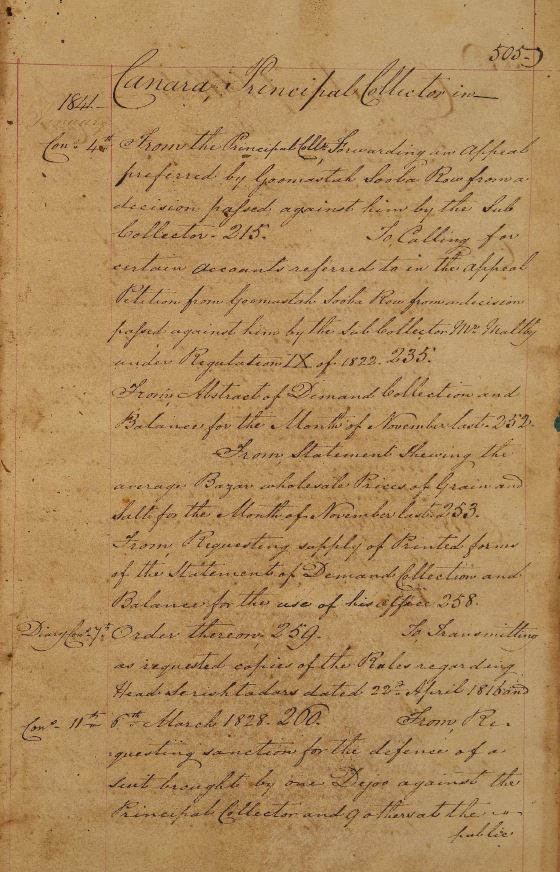 505
Canara, Principal Collector in
1841
Con.s 4th From the Principal Collr. Forwarding an Appeal
preferred by Goomastah Sooba Row from a
decision passed against him by the Sub
Collector. 215. To, Calling for
certain accounts referred to in the appeal
Petition from Goomastah Sooba Row from a decision
passed against him by the Sub Collector Mr. Maltby
under Regulation IX of 1822. 235.
From, Abstract of Demand Collection and
Balance for the Month of November last. 252.
From, Statement Shewing the
average Bazar wholesale Prices of Grain and
Salt for the Month of November last. 253.
From, Requesting supply of Printed forms
of the Statement of Demand Collection and
Balance for the use of his office 258.
Diary Con.s 7th Order thereon, 259. To, Transmitting
as requested copies of the Rules regarding
Head Serishtadars dated 22d. April 1816 and
Con.s 11th 6th March 1828. 260. From, Re-
questing sanction for the defence of a
suit brought by one Dejoo against the
Principal Collector and 9 others at the
public